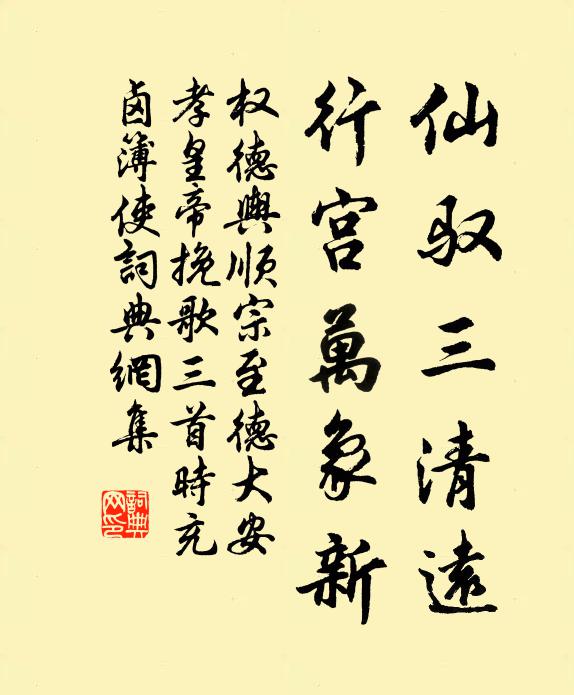 仙驭三清遠
行宫萬象新
权德輿順宗至德大安
孝皇帝挽歌三首時充
鹵簿使詞典網集
詞典
网印